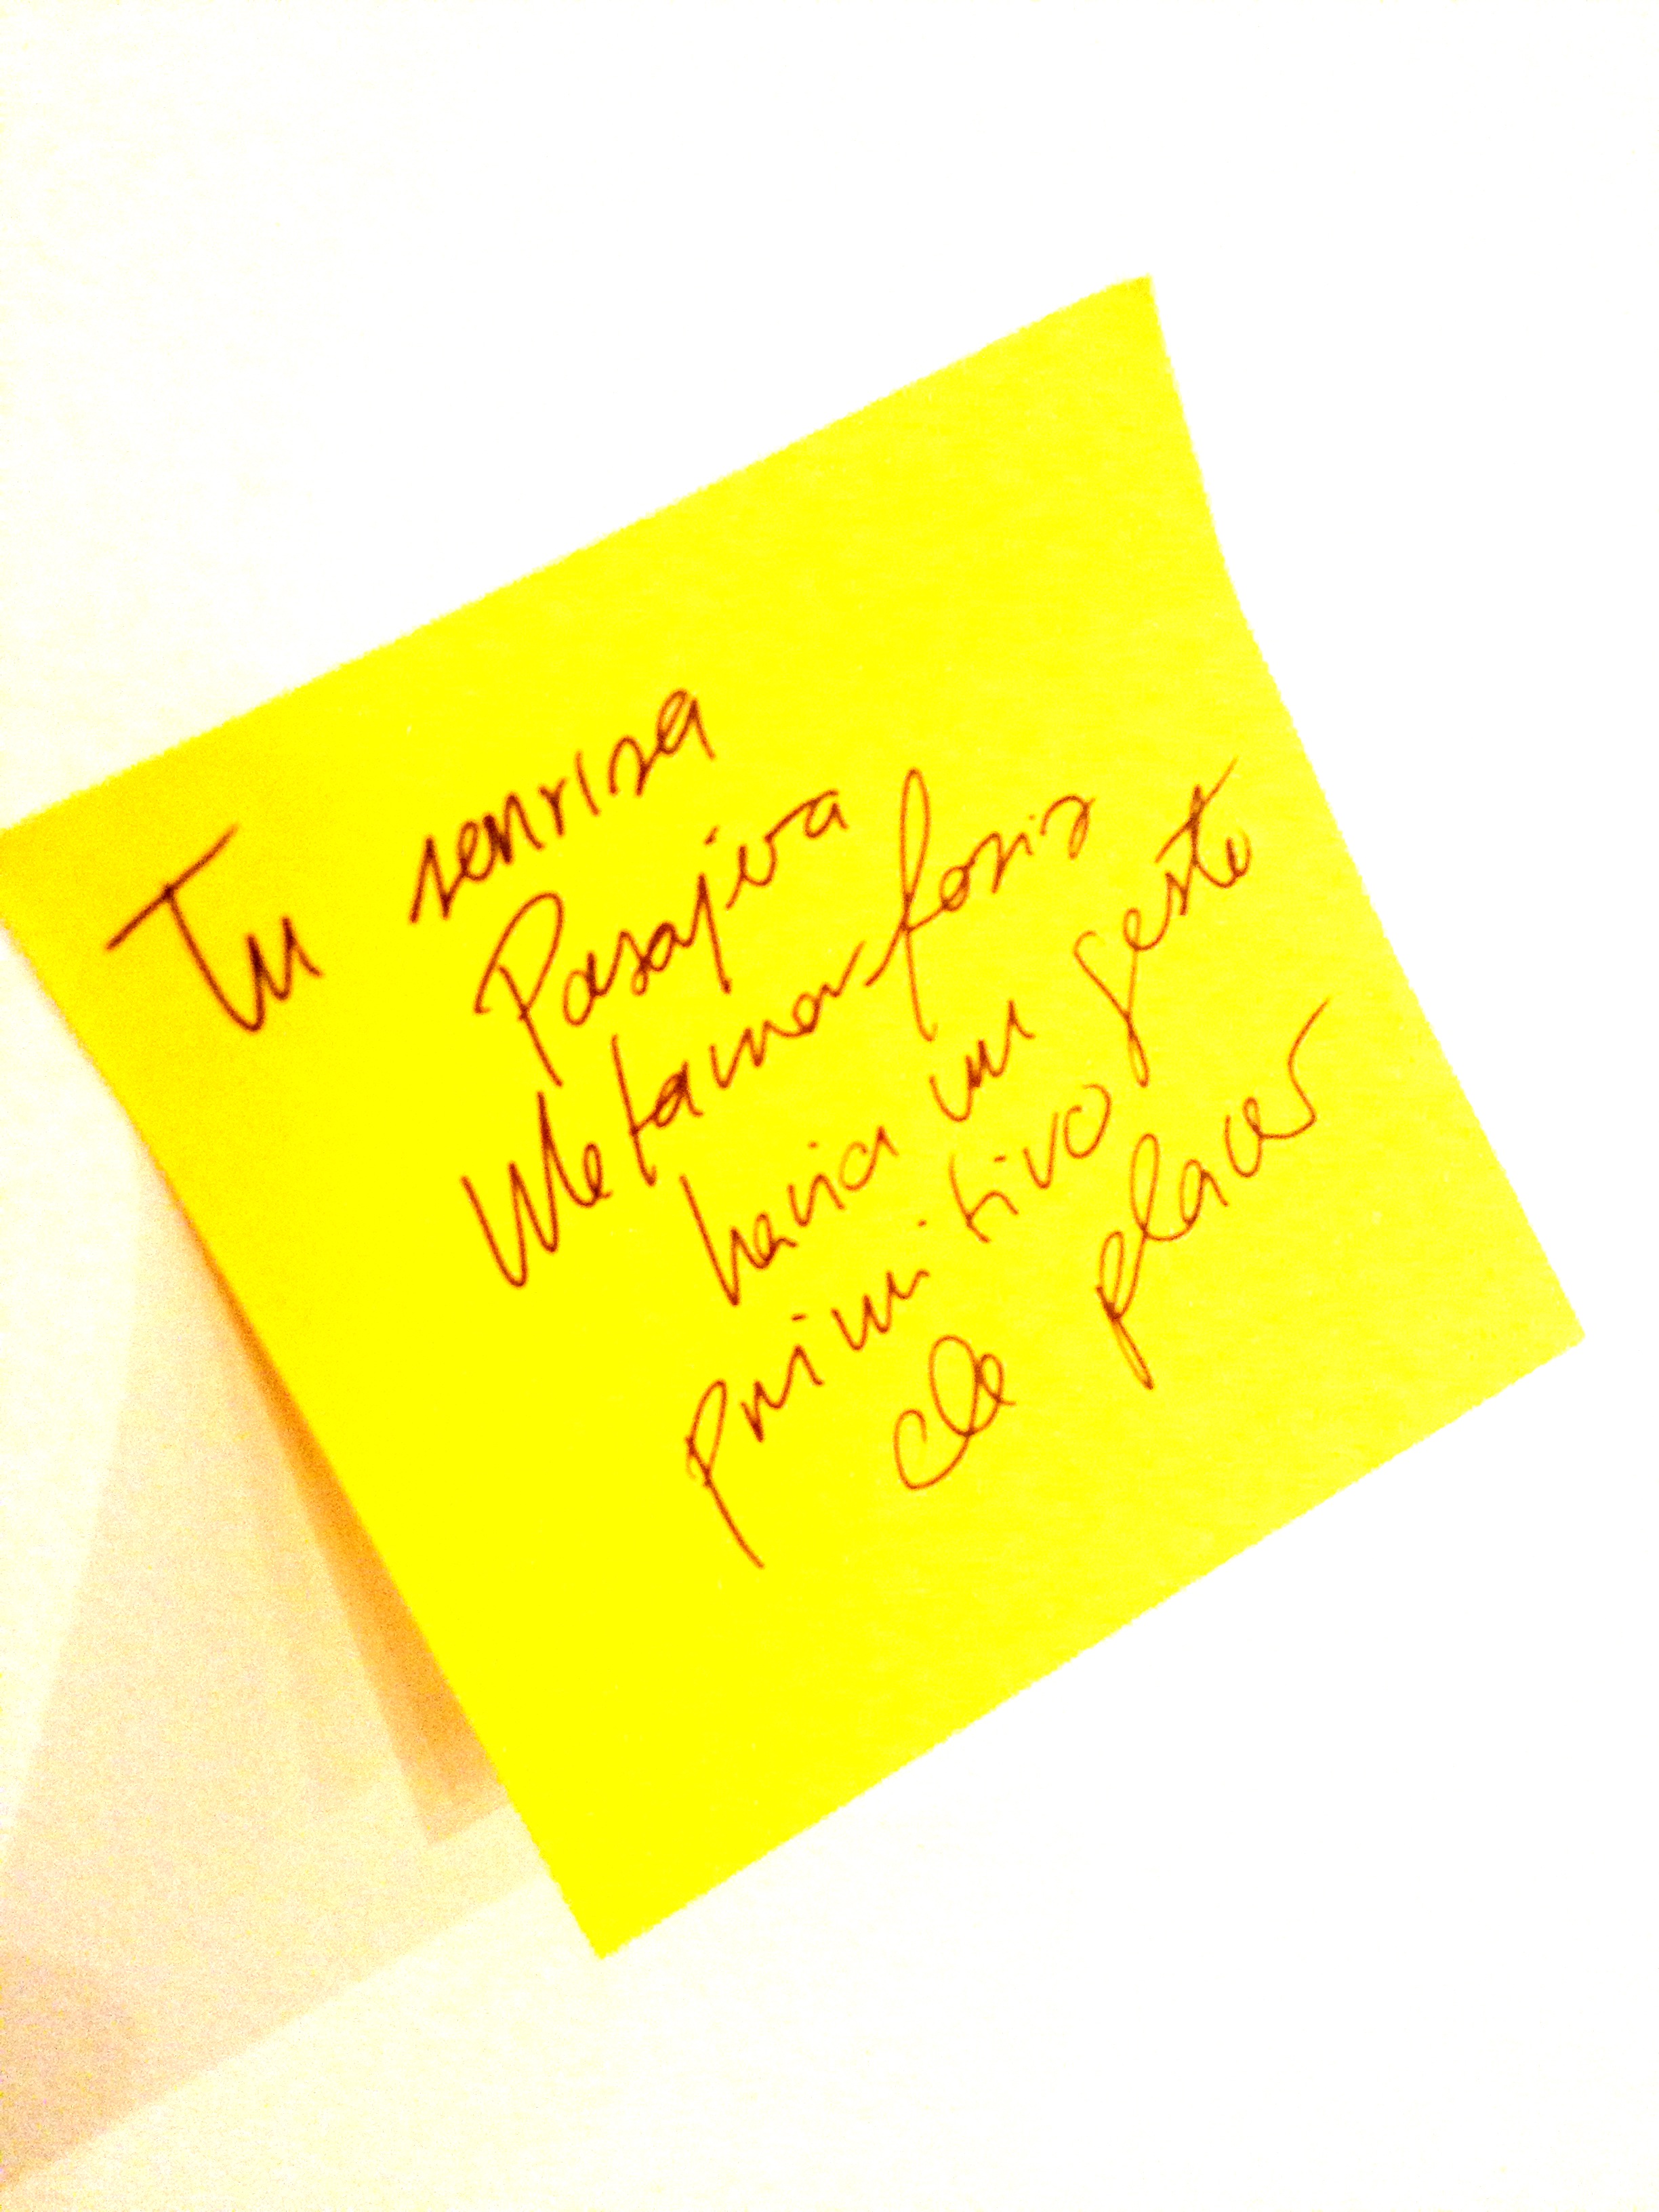 Tu sonrisa
Pasajera
Metamorfosis
hacia un gesto
primitivo
de placer